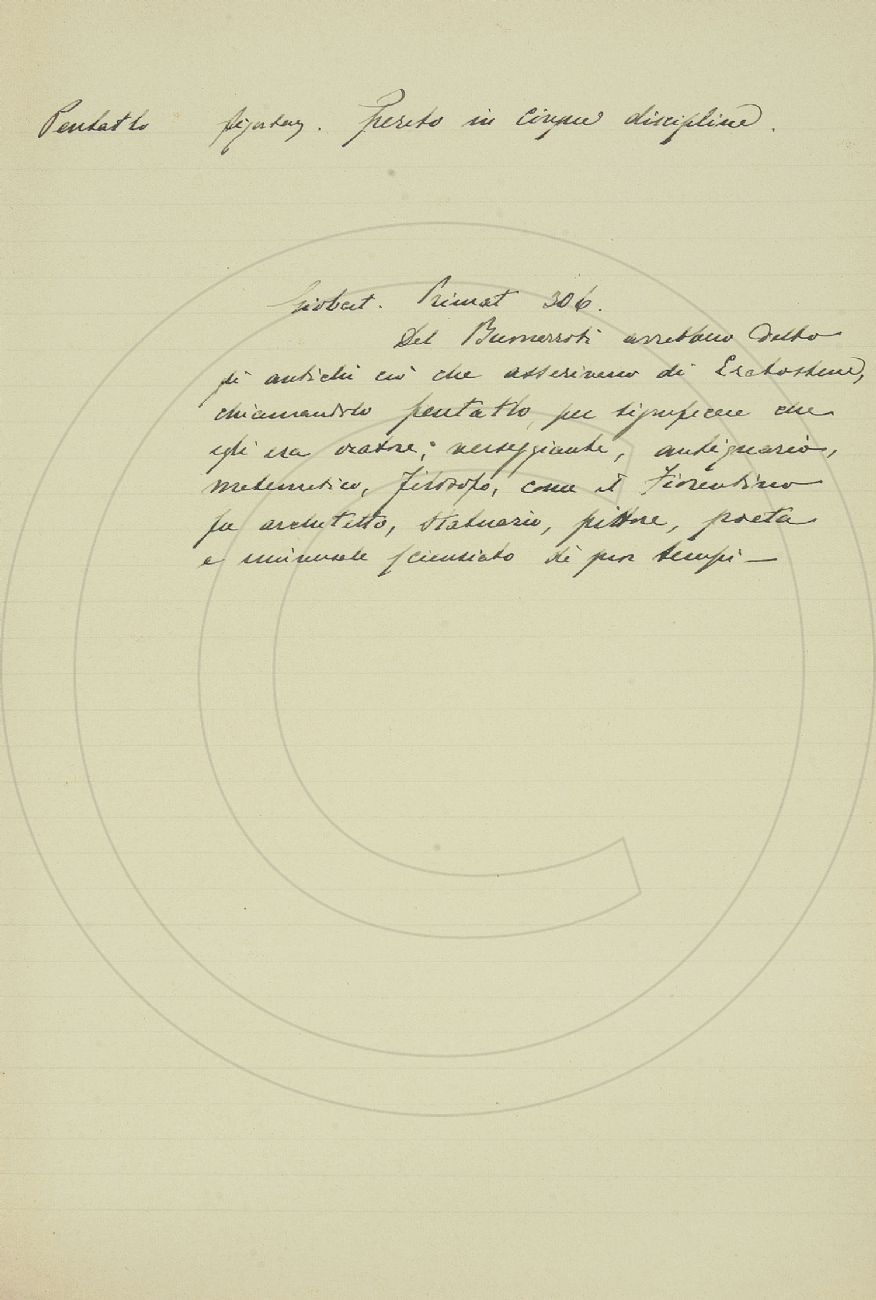 Pentatlo figurtaz. Perito in cinque discipline.
Giobert. Primat 306.
Del Buonarroti avrebbero detto
gli antichi ciò che asserivano di Eratostene,
chiamandolo pentatlo, per significare che
egli era oratore, verseggiante, antiquario,
matematico, filosofo, come il Fiorentino
fu architetto, statuario, pittore, poeta
e universale scienziato dè suoi tempi —